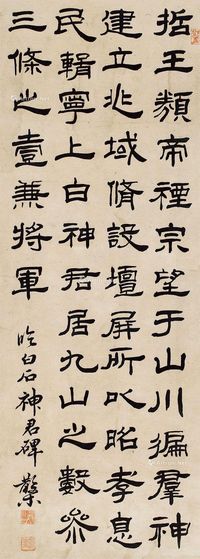 哲王類帝禋宗望于山川徧羣神
建立兆域脩設壇屏所以昭孝息
民輯寧上白神君居九山之數叅
三條之壹兼將軍
臨白石神君碑 檠